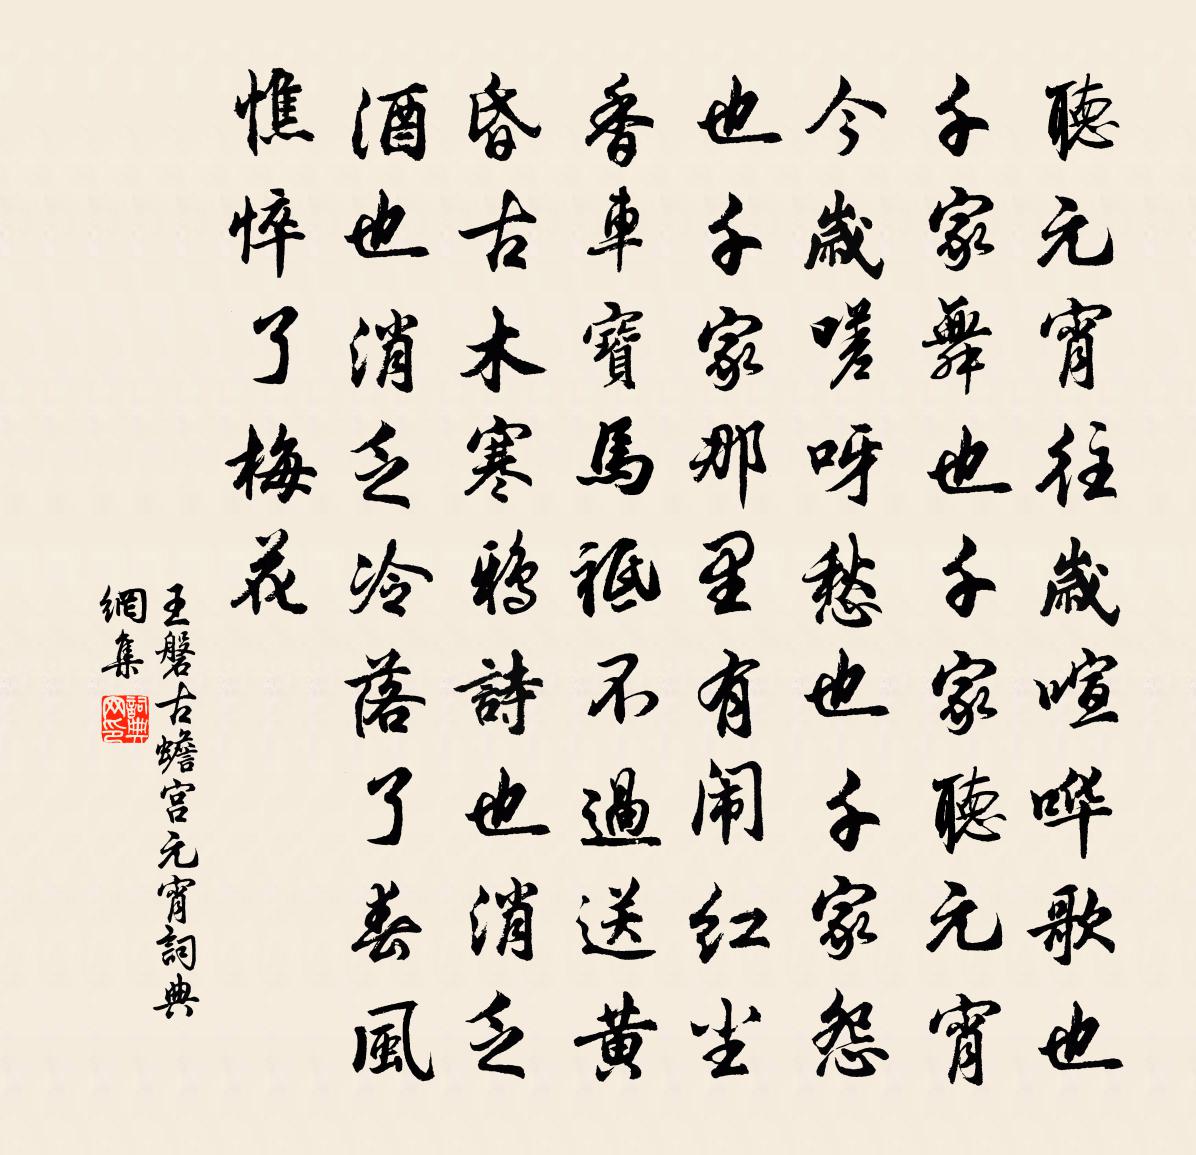 聽元宵往歲喧哗歌也
千家舞也千家聽元宵
今歲嗟呀愁也千家怨
也千家那里有闹红尘
香車寶馬祗不過送黄
昏古木寒鸦詩也消乏
酒也消乏冷落了春風
憔悴了梅花
王磐古蟾宫元宵詞典
網集
詞典网印